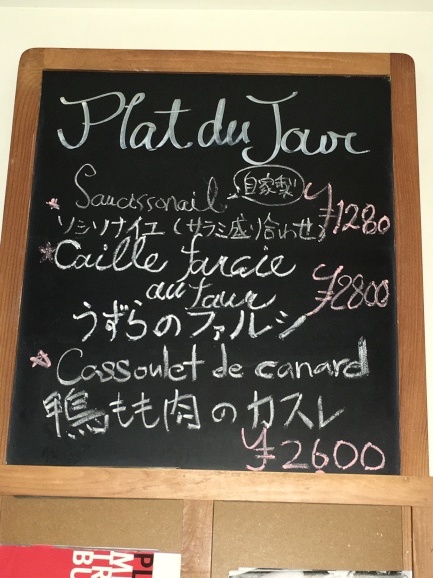 Plat du Jour
Saucissonaile 自家製
ソシソナイユ (サラミ盛り合わせ) ¥1280
Caille farcie
au four ¥2800
うずらのファルシ
Cassoulet de canard
鴨もも肉のカスレ
¥2600